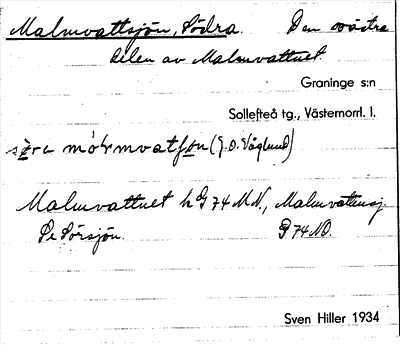 Malmvattsjön, Södra. Den västra
delen av Malmvattnet.
Graninge s:n
Sollefteå tg., Västernorrl. l.
(J.O. Våglund)
Malmvattnet h G 74 M.N., Malmvattensj.
Se Sörsjön. G 74 NO.
Sven Hiller 1934